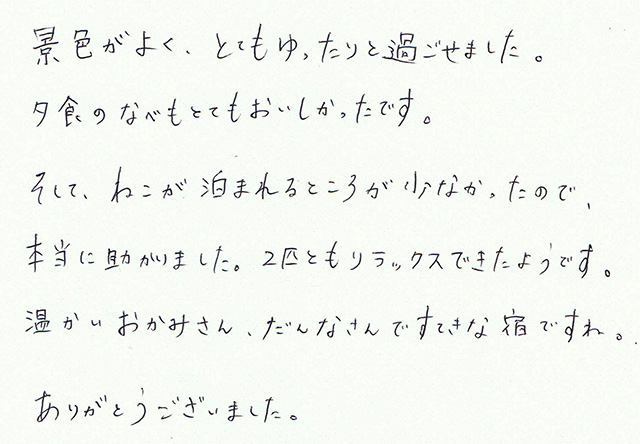 景色がよく、とてもゆったりと過ごせました。
夕食のなべもとてもおいしかったです。
そして、ねこが泊まれるところが少なかったので、
本当に助かりました。2匹ともリラックスできたようです。
温かいおかみさん、だんなさんですてきな宿ですね。
ありがとうございました。